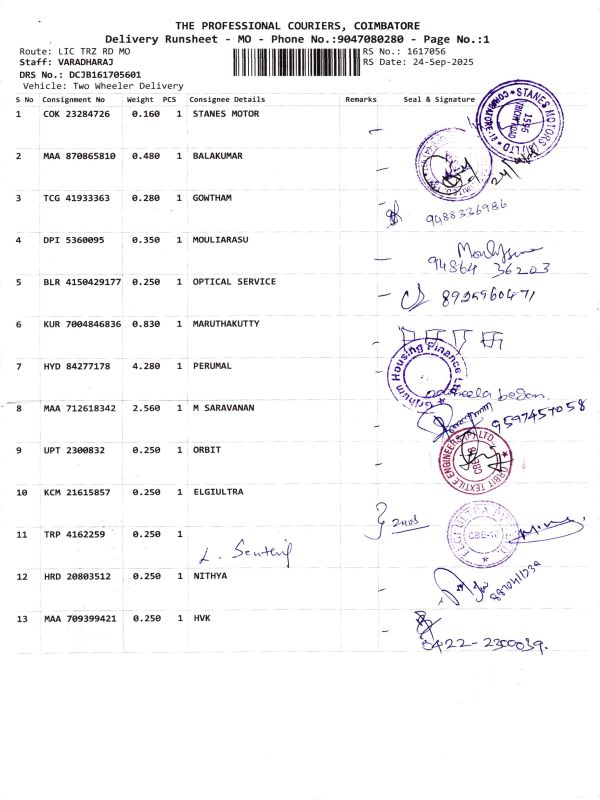 THE PROFESSIONAL COURIERS, COIMBATORE
Delivery Runsheet - MO - Phone No.:9047080280 - Page No.:1
Route: LIC TRZ RD MO RS No.: 1617056
Staff: VARADHARAJ RS Date: 24-Sep-2025
DRS No.: DCJB161705601
Vehicle: Two Wheeler Delivery
S No Consignment No Weight PCS Consignee Details Remarks Seal & Signature
1 COK 23284726 0.160 1 STANES MOTOR
STANES MOTORS
1596
2 MAA 870865810 0.480 1 BALAKUMAR
3 TCG 41933363 0.280 1 GOWTHAM
9488336986
4 DPI 5360095 0.350 1 MOULIARASU
94864 36203
5 BLR 4150429177 0.250 1 OPTICAL SERVICE
8925960471
6 KUR 7004846836 0.830 1 MARUTHAKUTTY
7 HYD 84277178 4.280 1 PERUMAL
Housing Finance Ltd
8 MAA 712618342 2.560 1 M SARAVANAN
9597457058
9 UPT 2300832 0.250 1 ORBIT
ORBIT TEXTILE ENGINEERS (P) LTD.
10 KCM 21615857 0.250 1 ELGIULTRA
2nos
ELGI ULTRA
11 TRP 4162259 0.250 1
12 HRD 20803512 0.250 1 NITHYA
13 MAA 709399421 0.250 1 HVK
0422-2300039.